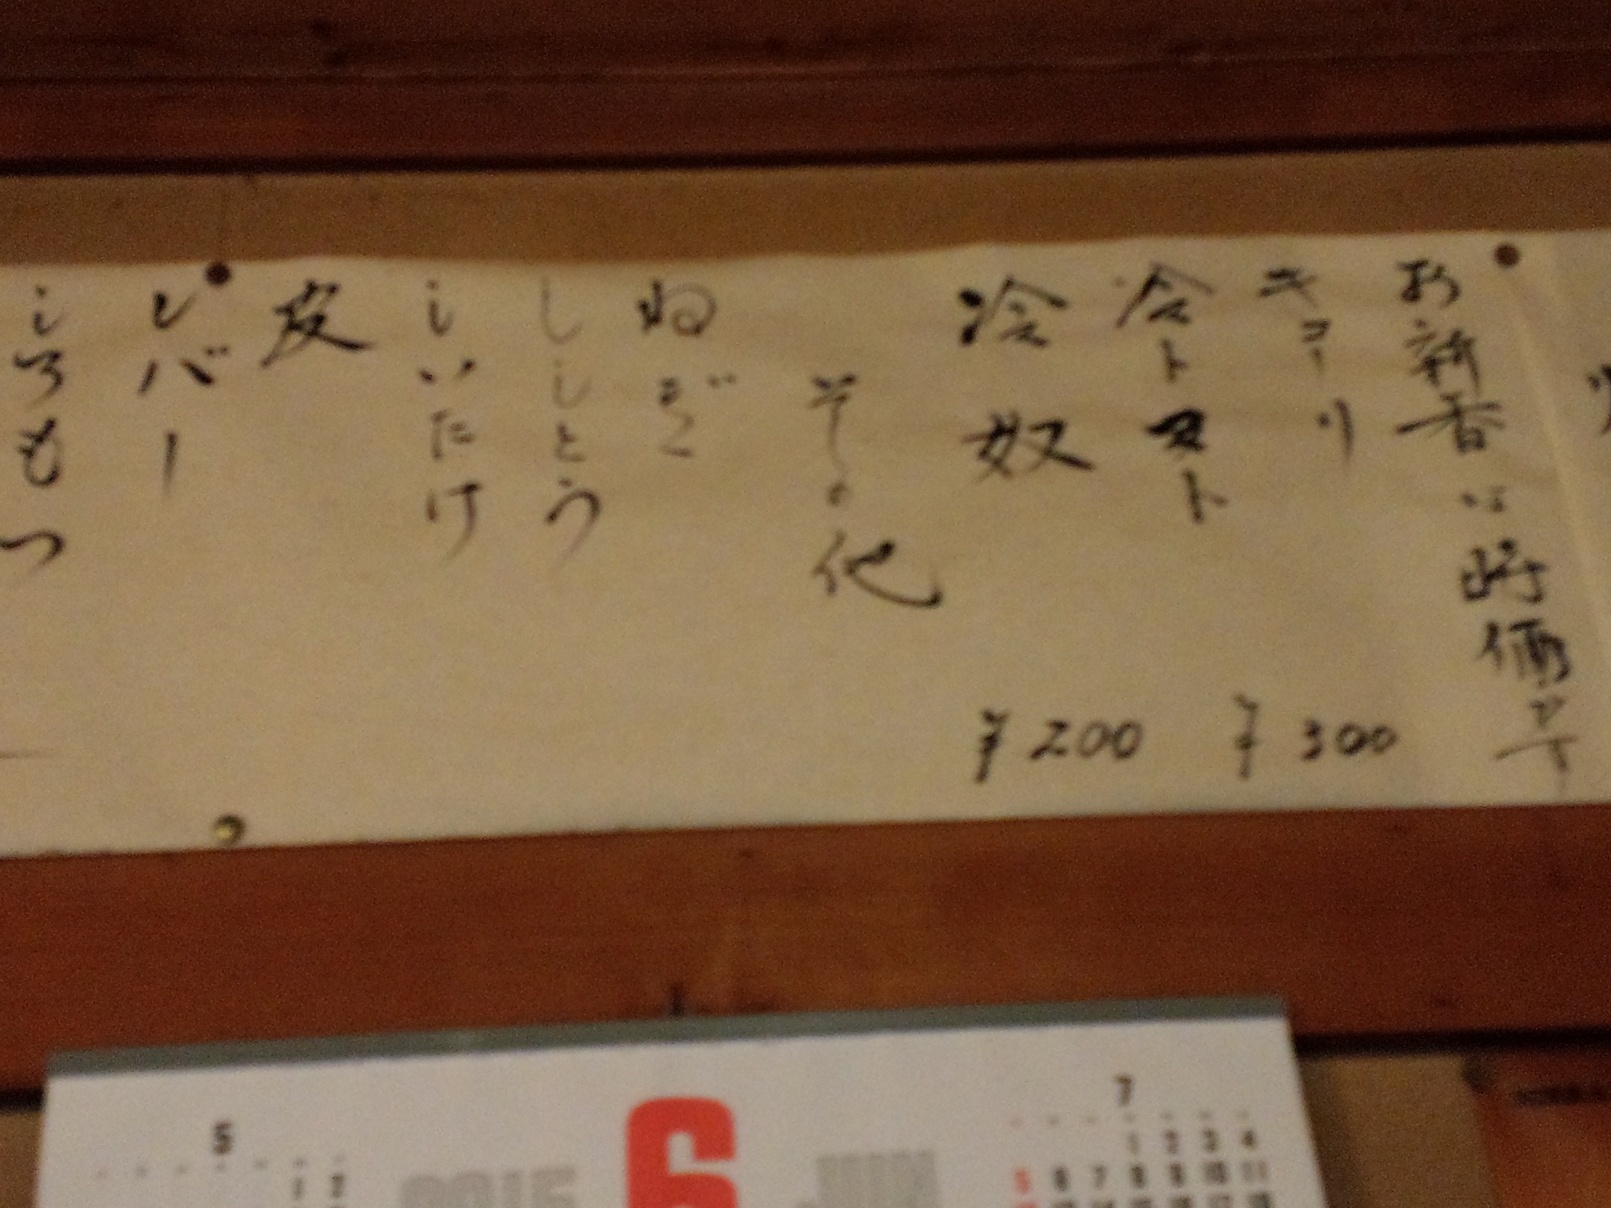 お新香は時価です
キューリ ¥300
冷トマト
冷奴 ¥200
その他
ねぎ
ししとう
しいたけ
皮
レバー
しろもつ
5
1 2
2015 6 JUN
7
1 2 3 4
5 6 7 8 9 10 11